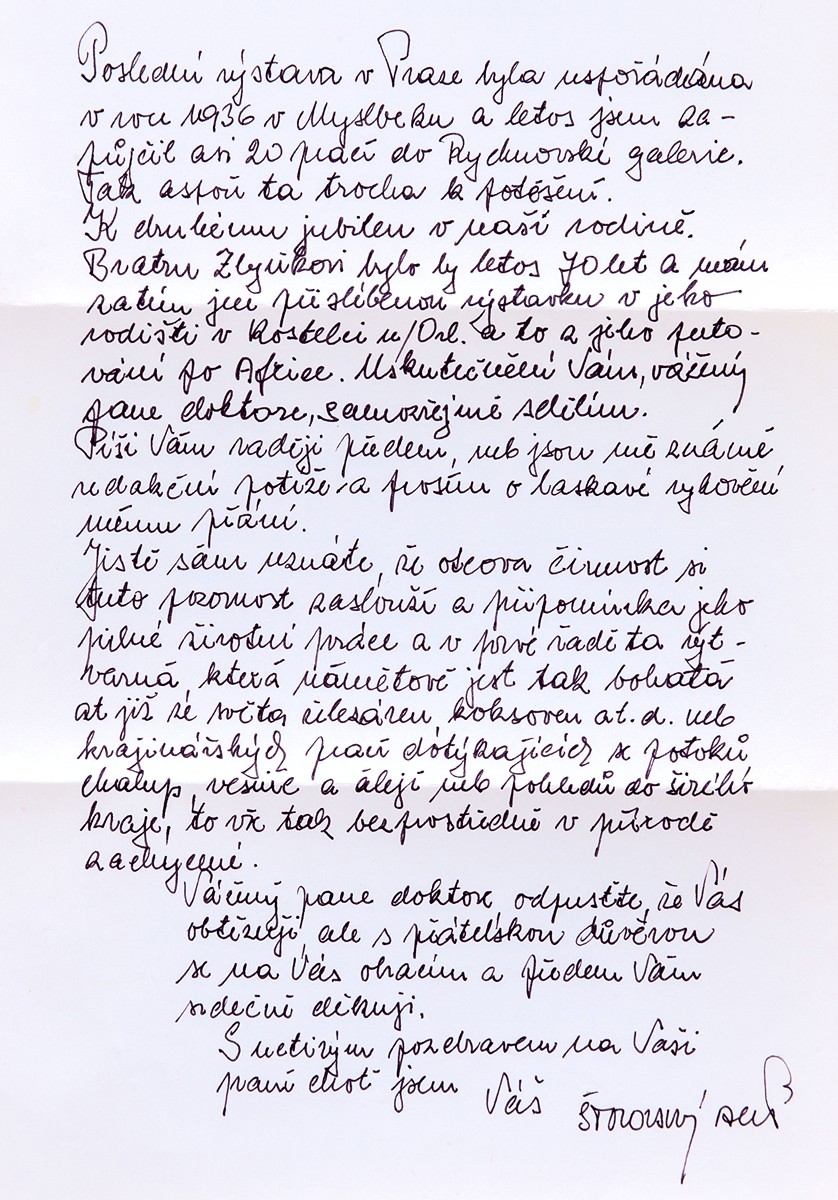 Poslední výstava v Praze byla uspořádána
v roce 1936 v Myslbeku a letos jsem za-
půjčil asi 20 prací do Rychnovské galerie.
Tak aspoň ta trocha k potěšení.
K druhému jubileu v naší rodině.
Bratru Zbyňkovi bylo by letos 70 let a mám
zatím jen přislíbenou výstavku v jeho
rodišti v Kostelci n/Orl. a to z jeho puto-
vání po Africe. Uskutečnění Vám, vážený
pane doktore, samozřejmě sdělím.
Píši Vám raději předem, neb jsou mě známé
redakční potíže a prosím o laskavé vyhovění
mému přání.
Jistě sám uznáte, že otcova činnost si
tuto pozornost zaslouží a připomínka jeho
pilné životní práce a v prvé řadě ta výt-
varná, která námětově jest tak bohatá
ať již ze světa železáren koksoven at.d. neb
krajinářských prací dotýkajících se potoků
chalup, vesnic a alejí neb pohledů do širého
kraje, to vše tak bezprostředně v přírodě
zachycené.
Vážený pane doktore, odpusťte, že Vás
obtěžuji, ale s přátelskou důvěrou
se na Vás obracím a předem Vám
srdečně děkuji.
S uctivým pozdravem na Vaši
paní choť jsem Váš